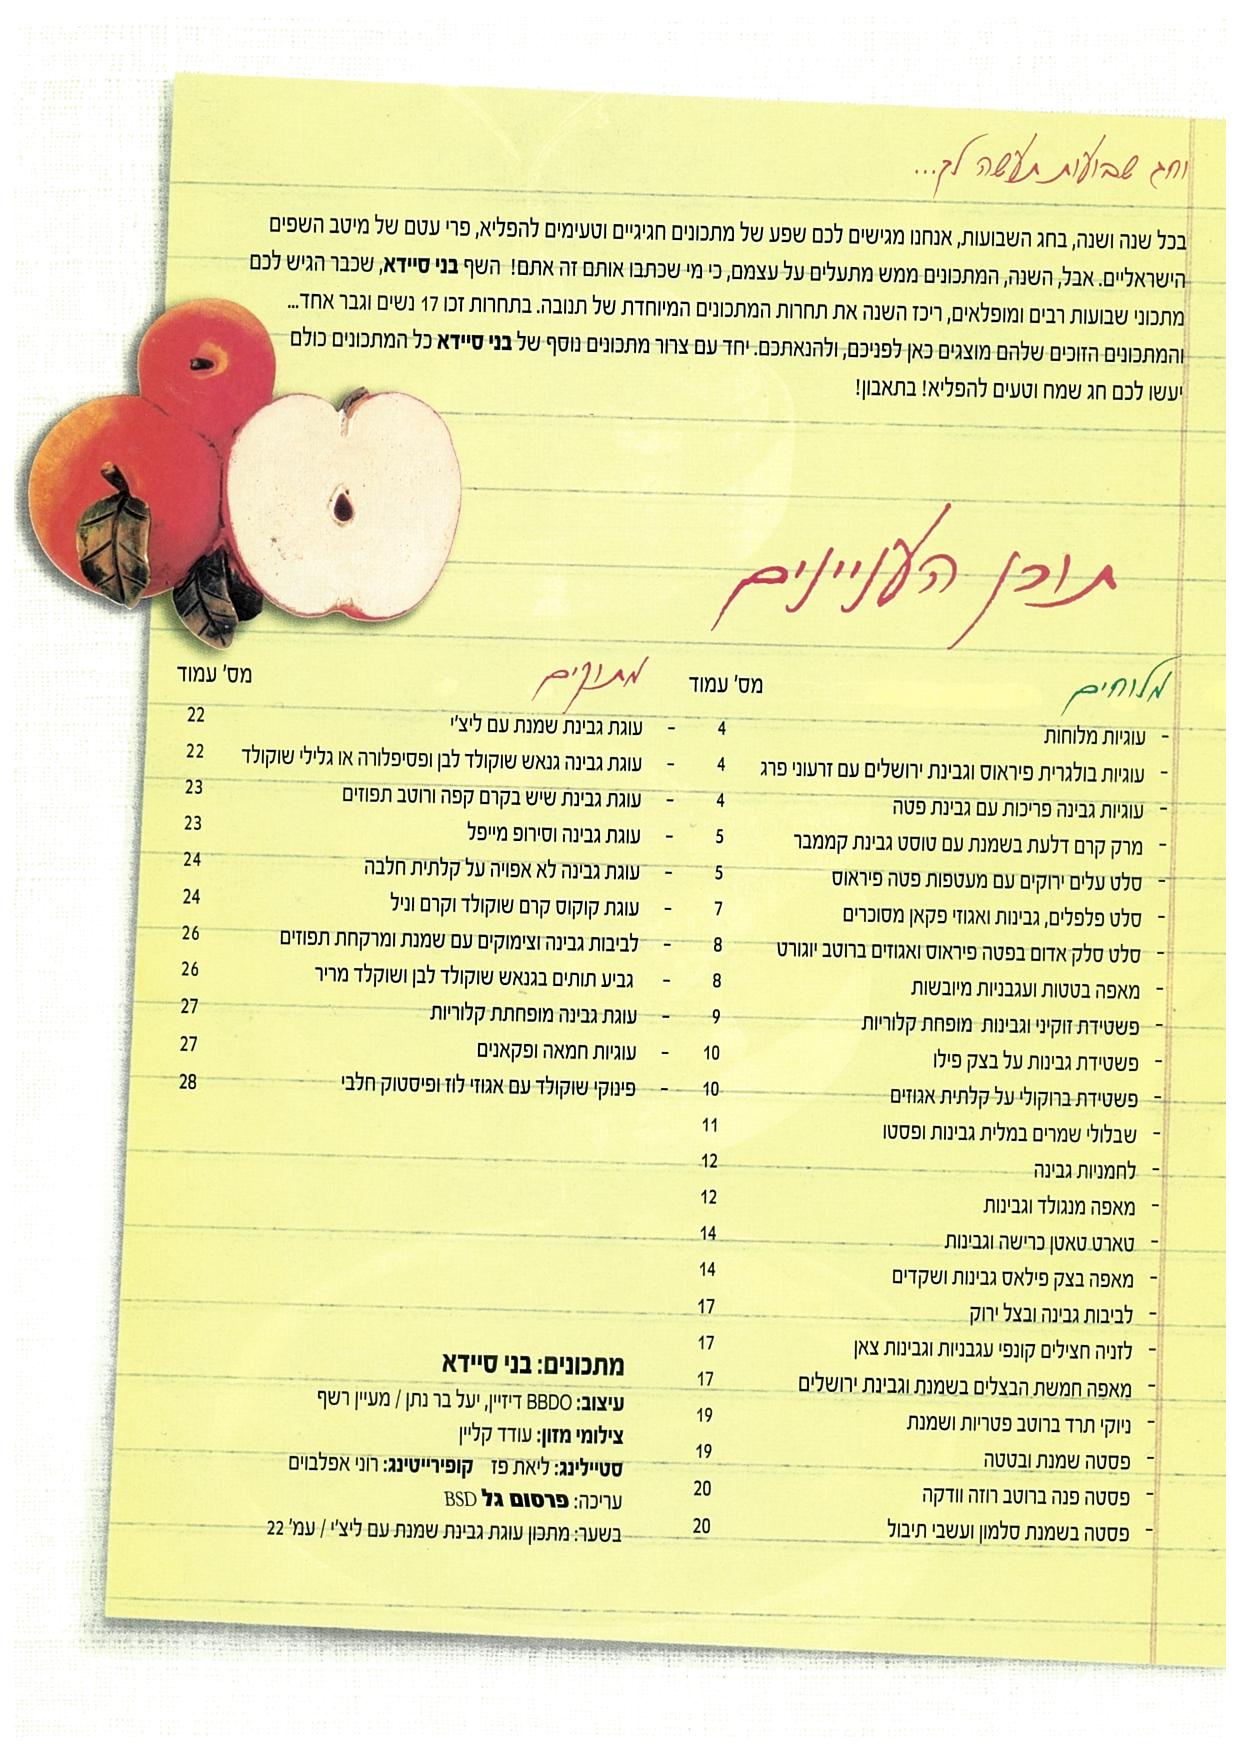 וחג שבועות תעשה לך...
בכל שנה ושנה, בחג השבועות, אנחנו מגישים לכם שפע של מתכונים חגיגיים וטעימים להפליא, פרי עטם של מיטב השפים
הישראליים. אבל, השנה, המתכונים ממש מתעלים על עצמם, כי מי שכתבו אותם זה אתם! השף בני סיידא, שכבר הגיש לכם
מתכוני שבועות רבים ומופלאים, ריכז השנה את תחרות המתכונים המיוחדת של תנובה. בתחרות זכו 17 נשים וגבר אחד...
והמתכונים הזוכים שלהם מוצגים כאן לפניכם, ולהנאתכם. יחד עם צרור מתכונים נוסף של בני סיידא כל המתכונים כולם
יעשו לכם חג שמח וטעים להפליא! בתאבון!
תוכן העניינים
מלוחים מס' עמוד
- עוגיות מלוחות 4
- עוגיות בולגרית פיראוס וגבינת ירושלים עם זרעוני פרג 4
- עוגיות גבינה פריכות עם גבינת פטה 4
- מרק קרם דלעת בשמנת עם טוסט גבינת קממבר 5
- סלט עלים ירוקים עם מעטפות פטה פיראוס 5
- סלט פלפלים, גבינות ואגוזי פקאן מסוכרים 7
- סלט סלק אדום בפטה פיראוס ואגוזים ברוטב יוגורט 8
- מאפה בטטות ועגבניות מיובשות 8
- פשטידת זוקיני וגבינות מופחת קלוריות 9
- פשטידת גבינות על בצק פילו 10
- פשטידת ברוקולי על קלתית אגוזים 10
- שבלולי שמרים במלית גבינות ופסטו 11
- לחמניות גבינה 12
- מאפה מנגולד וגבינות 12
- טארט טאטן כרישה וגבינות 14
- מאפה בצק פילאס גבינות ושקדים 14
- לביבות גבינה ובצל ירוק 17
- לזניה חצילים קונפי עגבניות וגבינות צאן 17
- מאפה חמשת הבצלים בשמנת וגבינת ירושלים 17
- ניוקי תרד ברוטב פטריות ושמנת 19
- פסטה שמנת ובטטה 19
- פסטה פנה ברוטב רוזה וודקה 20
- פסטה בשמנת סלמון ועשבי תיבול 20
מתוקים מס' עמוד
- עוגת גבינת שמנת עם ליצ'י 22
- עוגת גבינה גנאש שוקולד לבן ופסיפלורה או גלילי שוקולד 22
- עוגת גבינת שיש בקרם קפה ורוטב תפוזים 23
- עוגת גבינה וסירופ מייפל 23
- עוגת גבינה לא אפויה על קלתית חלבה 24
- עוגת קוקוס קרם שוקולד וקרם וניל 24
- לביבות גבינה וצימוקים עם שמנת ומרקחת תפוזים 26
- גביע תותים בגנאש שוקולד לבן ושוקלד מריר 26
- עוגת גבינה מופחתת קלוריות 27
- עוגיות חמאה ופקאנים 27
- פינוקי שוקולד עם אגוזי לוז ופיסטוק חלבי 28
מתכונים: בני סיידא
עיצוב: BBDO דיזיין, יעל בר נתן / מעיין רשף
צילומי מזון: עודד קליין
סטיילינג: ליאת פז קופירייטינג: רוני אפלבוים
עריכה: פרסום גל BSD
בשער: מתכון עוגת גבינת שמנת עם ליצ'י / עמ' 22